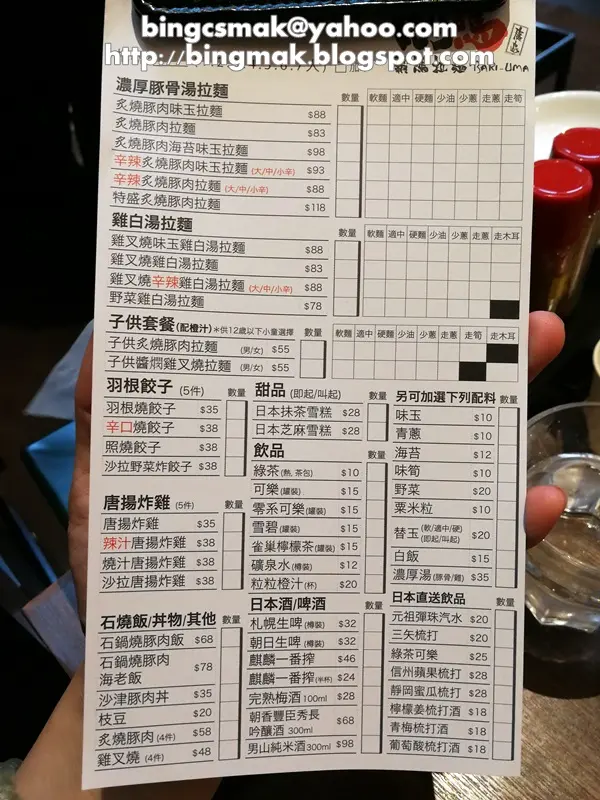 bingcsmak@yahoo.com
http://bingmak.blogspot.com
TSARI-UMA
濃厚豚骨湯拉麵 數量 軟麵 適中 硬麵 少油 少蔥 走蔥 走筍
炙燒豚肉味玉拉麵 $88
炙燒豚肉拉麵 $83
炙燒豚肉海苔味玉拉麵 $98
辛辣炙燒豚肉味玉拉麵 (大/中/小辛) $93
辛辣炙燒豚肉拉麵 (大/中/小辛) $88
特盛炙燒豚肉拉麵 $118
雞白湯拉麵 數量 軟麵 適中 硬麵 少油 少蔥 走蔥 走木耳
雞叉燒味玉雞白湯拉麵 $88
雞叉燒雞白湯拉麵 $83
雞叉燒辛辣雞白湯拉麵 (大/中/小辛) $88
野菜雞白湯拉麵 $78
子供套餐(配橙汁) *供12歲以下小童選擇 數量 軟麵 適中 硬麵 少油 少蔥 走蔥 走筍 走木耳
子供炙燒豚肉拉麵 (男/女) $55
子供醬燜雞叉燒拉麵 (男/女) $55
羽根餃子 (5件) 數量
羽根燒餃子 $35
辛口燒餃子 $38
照燒餃子 $38
沙拉野菜炸餃子 $38
唐揚炸雞 (5件) 數量
唐揚炸雞 $35
辣汁唐揚炸雞 $38
燒汁唐揚炸雞 $38
沙拉唐揚炸雞 $38
石燒飯/丼物/其他 數量
石鍋燒豚肉飯 $68
石鍋燒豚肉
海老飯 $78
沙津豚肉丼 $35
枝豆 $20
炙燒豚肉 (4件) $58
雞叉燒 (4件) $48
甜品 (即起/叫起) 數量
日本抹茶雪糕 $28
日本芝麻雪糕 $28
飲品 數量
綠茶(熱, 茶包) $10
可樂(罐裝) $15
零系可樂(罐裝) $15
雪碧(罐裝) $15
雀巢檸檬茶(罐裝) $15
礦泉水(樽裝) $12
粒粒橙汁(杯) $20
日本酒/啤酒 數量
札幌生啤(樽裝) $32
朝日生啤(樽裝) $32
麒麟一番搾 $46
麒麟一番搾(半杯) $24
完熟梅酒 100ml $28
朝香豐臣秀長
吟釀酒 300ml $68
男山純米酒 300ml $98
另可加選下列配料 數量
味玉 $10
青蔥 $10
海苔 $12
味筍 $10
野菜 $20
粟米粒 $10
替玉 (軟/適中/硬) (即起/叫起) $20
白飯 $15
濃厚湯(豚骨/雞) $35
日本直送飲品 數量
元祖彈珠汽水 $20
三矢梳打 $20
綠茶可樂 $25
信州蘋果梳打 $28
靜岡蜜瓜梳打 $28
檸檬姜梳打酒 $18
青梅梳打酒 $18
葡萄酸梳打酒 $18